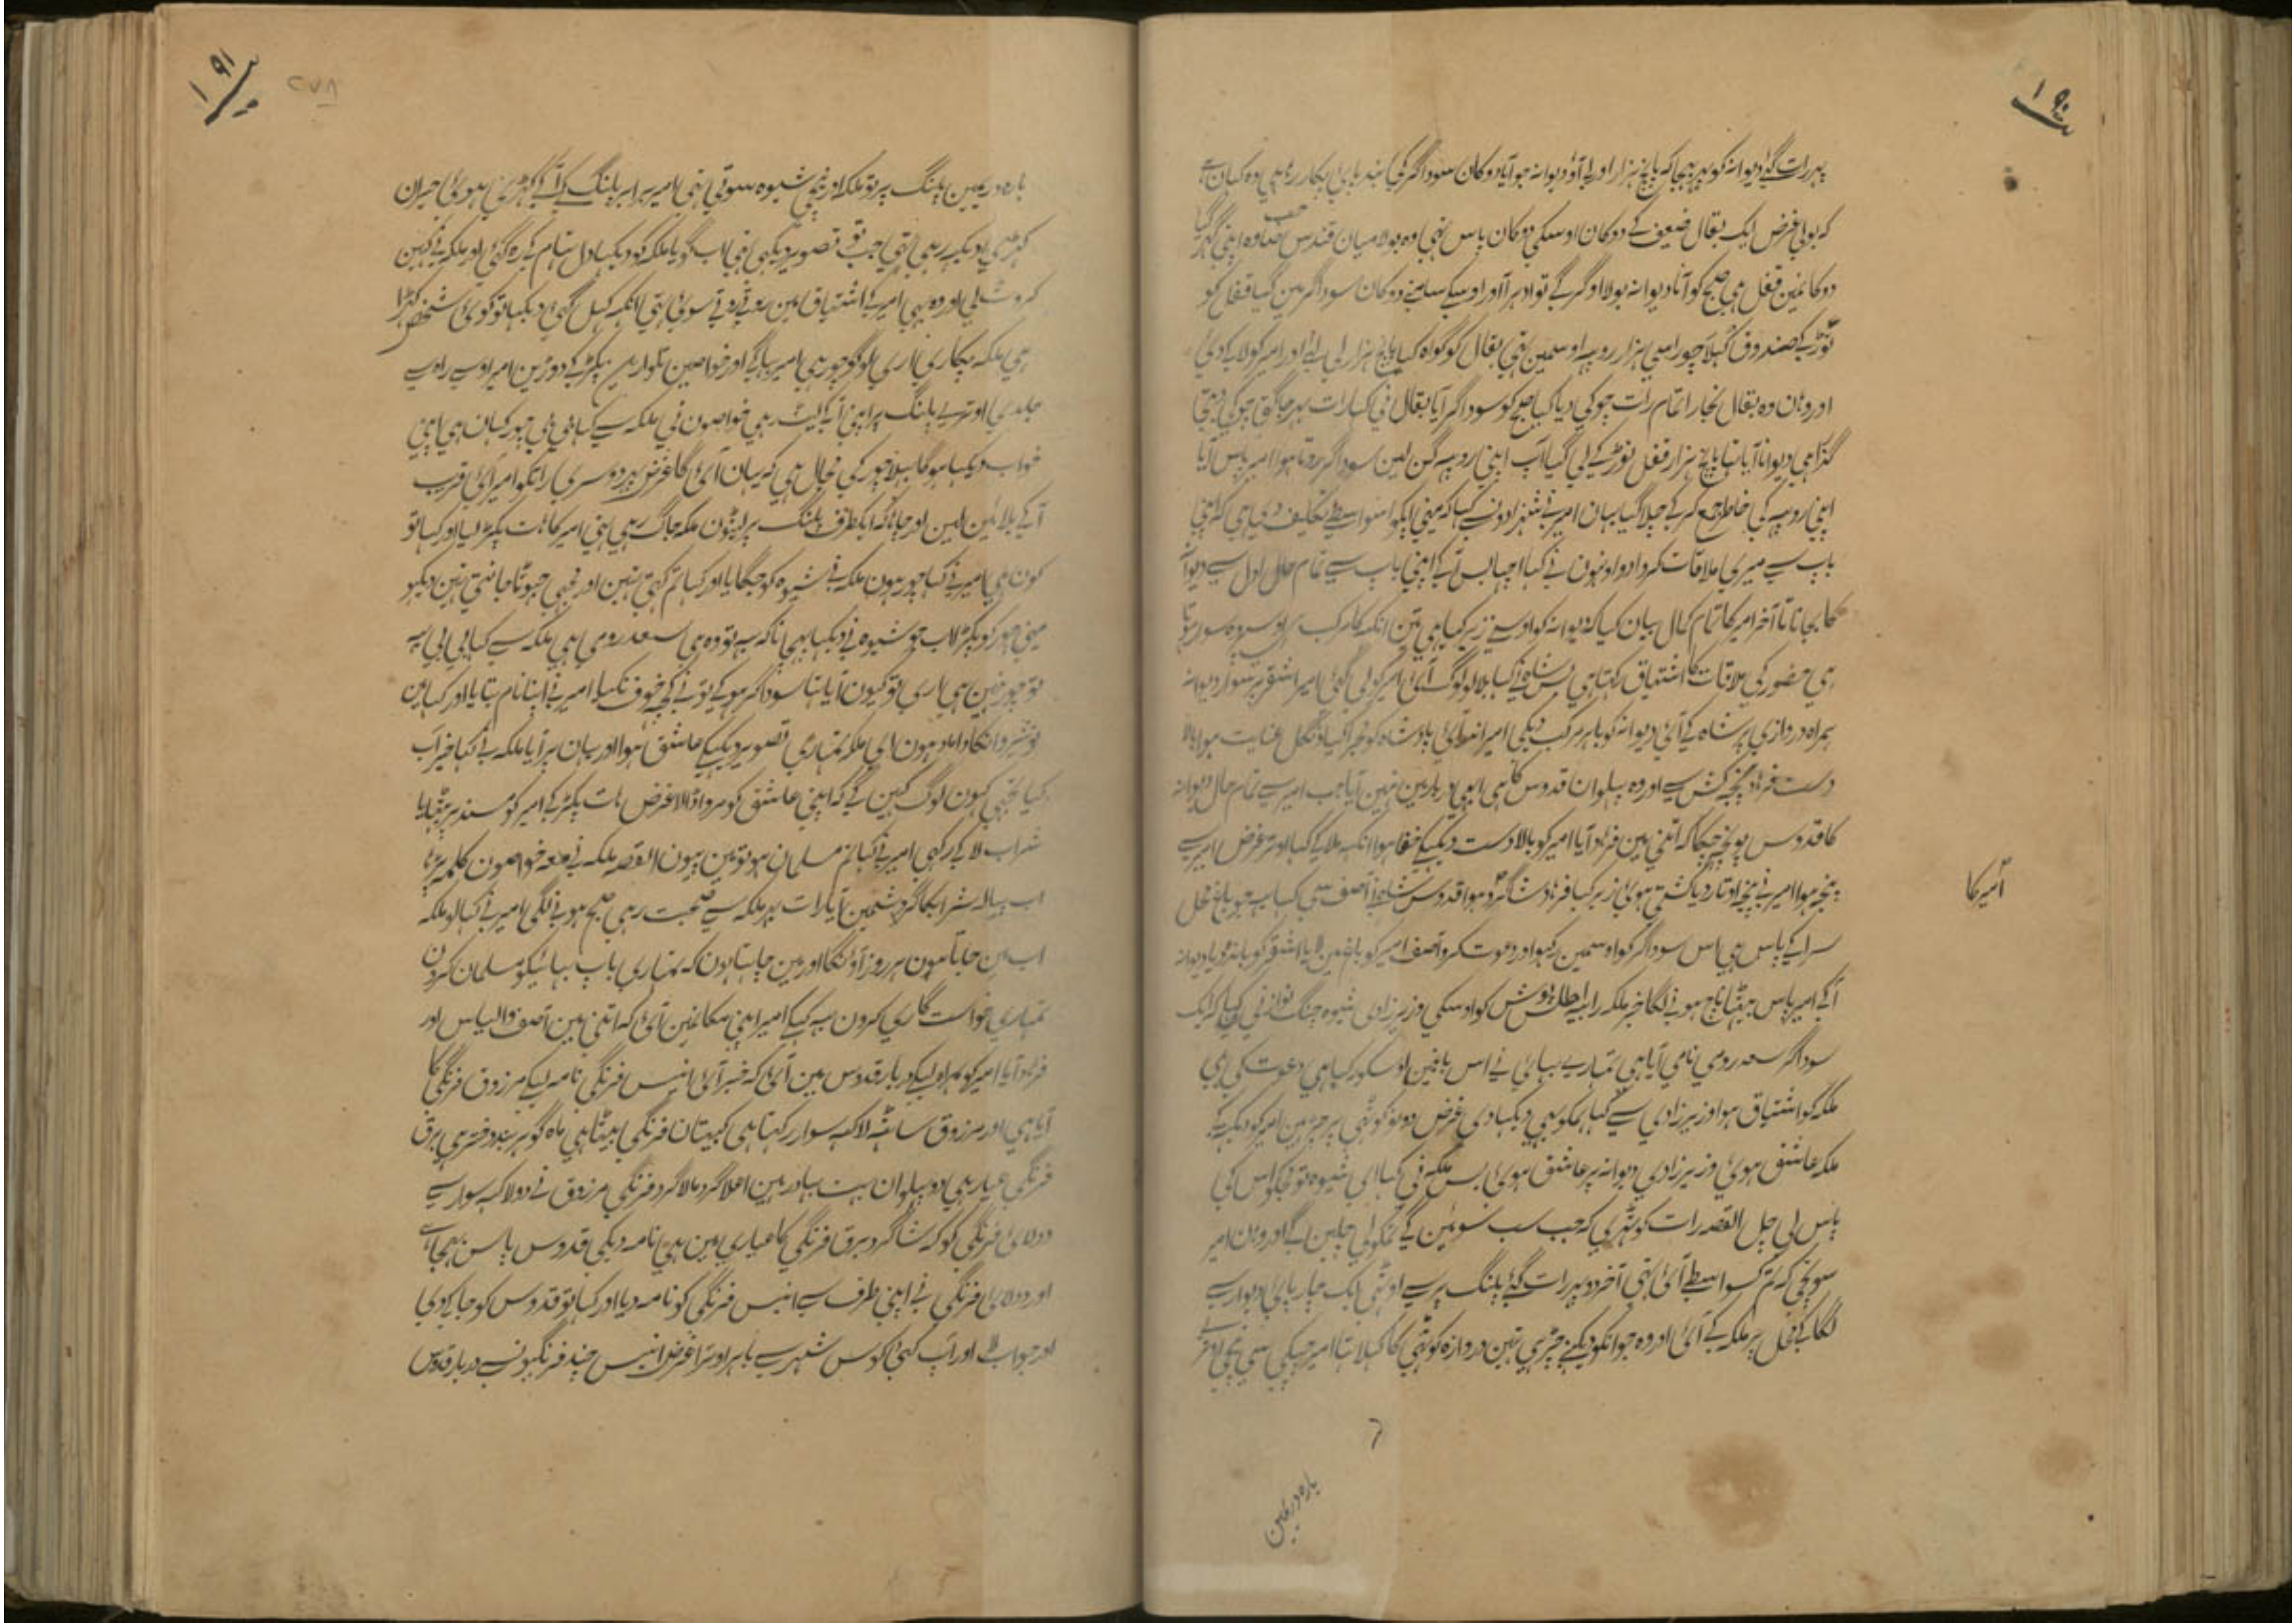 ۱۹۰
پہر رات گئے دیوانہ کو پہر بہیجا کہ پانچ ہزار اور لی آؤ دیوانہ جو آیا دوکان سوداگر کی بند پائی پکار رہے ہی وہ کہان ہے
کہ بولی غرض ایک بقال ضعیف کے دوکان اوسکی دوکان پاس تہی وہ بولا میان اپنی گہر گیا
دوکانمین قفل ہی صبح کو آنا دیوانہ بولا او گر گے تو ادہر آ اور اوسکے سامنے دوکان سوداگر مین گیا قفل کو
توڑ کے صندوق کہولا چوراسی ہزار روپیہ اوسمین تہی بقال کو گواہ کیا پانچ ہزار لی لئے اور امیر کو لا کے دی
اور وہان وہ بقال بچارا تمام رات چوکی دیا کیا صبح کو سوداگر آیا بقال نی کہا رات بہر جاگتی چوکی دیتی
گذرا ہی دیوانا آیا تہا پانچ ہزار قفل توڑ کے لی گیا آپ اپنی روپیہ گن لین سوداگر روتا ہوا امیر پاس آیا
اپنی روپیہ کی خاطر جمع کر کے چلا گیا یہان امیر نے شہزادونسے کہا کہ مینی آپکو اسواسطے تکلیف دی ہی کہ اپنی
باپ سے میری ملاقات کروا دو اونہون نے کہا اچہا بس آکے اپنی باپ سے تمام حال اول سے دیوانہ
کا بیان کیا تا آخر امیر کا تمام کمال بیان کیا کہ دیوانہ کو اوسنے زیر کیا ہی تین آنکہہ کا مرکب ہی اوسپر وہ سوار ہوتا
ہی حضور کی ملاقات کا اشتیاق رکہتا ہی شاہ نے کہا بلا لو لوگ آئے امیر کو لی گئی امیر اشقر پر سوار دیوانہ
ہمراہ دروازی پر شاہ کے آئی دیوانہ کو باہر مرکب دیکی امیر اندر آئی پادشاہ کو مجرا کیا دنگل عنایت ہوا بالا
دست فرہاد پنجہ کش سے اور وہ پہلوان قدوس کا ہی ابہی دربار مین نہین آیا جب امیر سے تمام حال دیوانہ
کا قدوس پوچہہ چکا کہ اتنی مین فرہاد آیا امیر کو بالا دست دیکہکے خفا ہوا آنکہہ ملا کے کہا اوتر غرض امیر سے
پنجہ ہوا امیر نے پنجہ اوتار دیا کشتی ہوئی زیر کیا فرہاد شاگرد ہوا قدوس شاہ نے آصف سی کہا یہ جو باغ محل
امیر کا
سرا کے پاس ہی اس سوداگر کو اوسمین رکہو اور دعوت کرو آصف امیر کو باغ مین لایا اشقر کو باندہ دیا دیوانہ
آکے امیر پاس بیٹہا ناچ ہونے لگا خبر ملکہ رابعہ اطلس پوش کو اوسکی وزیرزادی شیوہ چنگ نواز نی کہا کہ ایک
سوداگر سعد رومی نامی آیا ہی تمہارے بہائی نے اس باغمین اوسکو رکہا ہی دعوت کی ہی
ملکہ کو اشتیاق ہوا وزیرزادی سے کہا ہمکو بہی دیکہا دی غرض دونو کوٹہی پر چڑہین امیر کو دیکہہ کے
ملکہ عاشق ہوئی وزیرزادی دیوانہ پر عاشق ہوئی بس ملکہ نی کہا ای شیوہ تو مجکو اس کی
پاس لی چل القصہ رات کو ٹہری کہ جب سب سوئین گے تمکو لی چلین گے اور وہان امیر
سونچی کہ تم کسواسطے آئی تہی آخر دو پہر رات گئے پلنگ پر سے اوٹہی ایک چارپائی دیوار سے
لگا کے محل پر ملکہ کے آئی اور وہ جو انکو دیکہنے چڑہی تہین دروازہ کوٹہی کا کہلا تہا امیر چپکی سی نیچی اوترے
بارہ دریمین
۱۹۱
۲۷۸
بارہ دریمین پلنگ پر تو ملکہ اور نیچی شیوہ سوتی تہی امیر برابر پلنگ کے آکے کہڑی ہوئی حیران
کہڑی دیکہہ رہی تہی جب تو تصویر دیکہی تہی اب گویا ملکہ کو دیکہا دل تہام کے رہ گئی اور ملکہ نے کہین
کروٹ لی اور وہ بہی امیر کے اشتیاق مین روتے روتے سوئی تہی آنکہہ کہل گئی دیکہا تو کوئی شخص کہڑا
ہی ملکہ پکاری اری لوگو چور ہی امیر بہاگے اور خواصین تلوارین پکڑ کے دوڑین امیر اوسی راہ سے
جلدی اوتر کے پلنگ پر اپنی آکے لیٹ رہی خواصون نی ملکہ سے کہا بی بی چور کہان ہی اپنی
خواب دیکہا ہوگا بہلا چور کی مجال ہی کہ یہان آئی گا غرض پہر دوسری راتکو امیر آئی قریب
آکے بلائین لین اور چاہا کہ ایکطرف پلنگ پر لیٹون ملکہ جاگ رہی تہی امیر کا ہات پکڑ لیا اور کہا تو
کون ہی امیر نے کہا چور ہون ملکہ نے شیوہ کو جگایا اور کہا تم کہتی تہین اور مجہی جہوٹا جانتی تہین دیکہو
مینی چور کو پکڑا اب جو شیوہ نے دیکہا پہچانا کہ یہ تو وہ ہی سعد رومی ہی ملکہ سے کہا بی بی یہ
تو چور نہین ہی اری تو کیون آیا تہا سوداگر ہو کے تو نے کچہ خوف نکیا امیر نے اپنا نام بتایا اور کہا مین
نوشیروانکا داماد ہون ای ملکہ تمہاری تصویر دیکہکے عاشق ہوا اور یہان پر آیا ملکہ نے کہا خیر اب
کیا تجہی کہون لوگ کہین گے کہ اپنی عاشق کو مروا ڈالا غرض ہات پکڑ کے امیر کو مسند پر بٹہایا
شراب لا کے رکہی امیر نے کہا تم مسلمان ہو تو مین پیون القصہ ملکہ نے معہ خواصون کلمہ پڑہا
اب پیالہ شرابکا گردشمین آیا رات بہر ملکہ سے صحبت رہی صبح ہونے لگی امیر نے کہا لو ملکہ
اب مین جاتا ہون ہر روز آؤنگا اور مین چاہتا ہون کہ تمہاری باپ بہائیکو مسلمان کرون
تمہاری خواست گاری کرون یہ کہکے امیر اپنی مکانمین آئی کہ اتنی مین آصف و الیاس اور
فرہاد آیا امیر کو ہمراہ لیکے دربار قدوس مین آئی کہ خبر آئی انیس فرنگی نامہ لیکے مرزوق فرنگی کا
آیا ہی اور مرزوق ساٹہہ لاکہہ سوار رکہتا ہی کپیتان فرنگی بیٹا ہی ماہ گوہر بند دختر ہی برق
فرنگی عیار ہی دو پہلوان بہت بہادر ہین اعلا گرد مالا گرد فرنگی مرزوق نے دو لاکہہ سوار سے
دولائی فرنگی کو کہ شاگرد برق فرنگی کا عیاری مین ہی نامہ دیکی قدوس پاس بہیجا ہے
اور دولائی فرنگی نے اپنی طرف سے انیس فرنگی کو نامہ دیا اور کہا تو قدوس کو جا کے دی
اور جواب لا اور آپ کئی کوس شہر سے باہر اوترا غرض انیس چند فرنگیونسے دربار قدوس